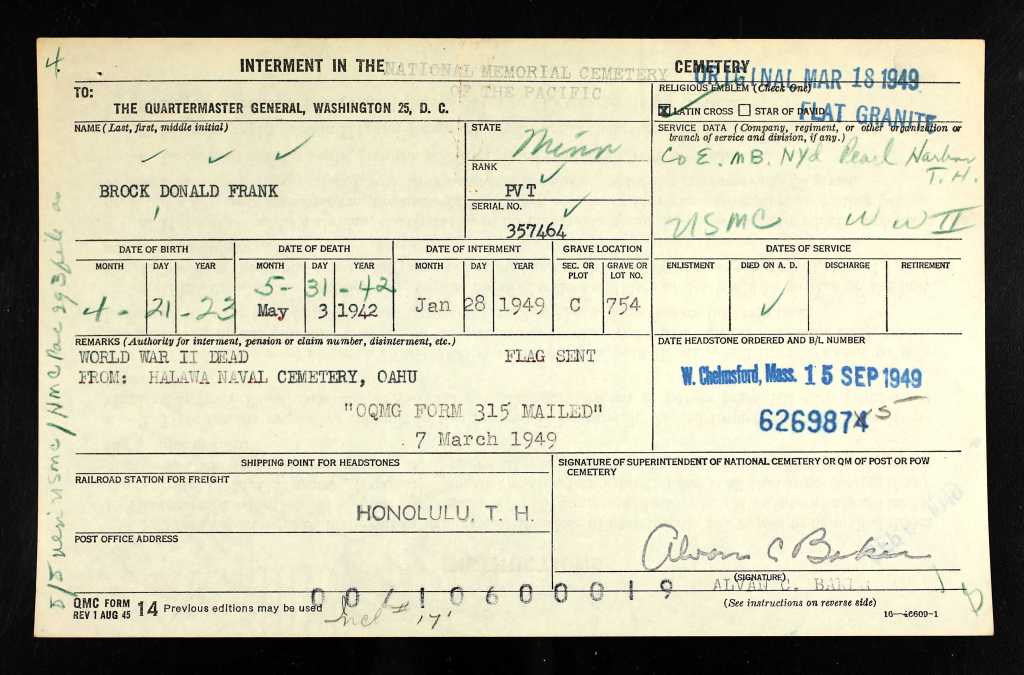 4.
INTERMENT IN THE NATIONAL MEMORIAL CEMETERY CEMETERY
OF THE PACIFIC
ORIGINAL MAR 18 1949
TO:
THE QUARTERMASTER GENERAL, WASHINGTON 25, D. C.
RELIGIOUS EMBLEM (Check One)
X LATIN CROSS STAR OF DAVID
FLAT GRANITE
NAME (Last, first, middle initial)
BROCK DONALD FRANK
STATE
Minn
RANK
PVT
SERIAL NO.
357464
SERVICE DATA (Company, regiment, or other organization or
branch of service and division, if any.)
Co E. MB. NYd Pearl Harbor
T.H.
USMC W W II
DATE OF BIRTH DATE OF DEATH DATE OF INTERMENT GRAVE LOCATION DATES OF SERVICE
MONTH DAY YEAR MONTH DAY YEAR MONTH DAY YEAR SEC. OR PLOT GRAVE OR LOT NO. ENLISTMENT DIED ON A. D. DISCHARGE RETIREMENT
5- 31 -42
4 - 21 - 23 May 3 1942 Jan 28 1949 C 754
REMARKS (Authority for interment, pension or claim number, disinterment, etc.)
WORLD WAR II DEAD FLAG SENT
FROM: HALAWA NAVAL CEMETERY, OAHU
"OQMG FORM 315 MAILED"
7 March 1949
DATE HEADSTONE ORDERED AND B/L NUMBER
W. Chelmsford, Mass. 15 SEP 1949
6269874 5
SHIPPING POINT FOR HEADSTONES
RAILROAD STATION FOR FREIGHT
HONOLULU, T. H.
POST OFFICE ADDRESS
SIGNATURE OF SUPERINTENDENT OF NATIONAL CEMETERY OR QM OF POST OR POW
CEMETERY
Alvan C Baker
(SIGNATURE)
ALVAN C. BAKER
(See instructions on reverse side)
QMC FORM
REV 1 AUG 45 14 Previous editions may be used
00710600019
Incl # 17
16—46609-1